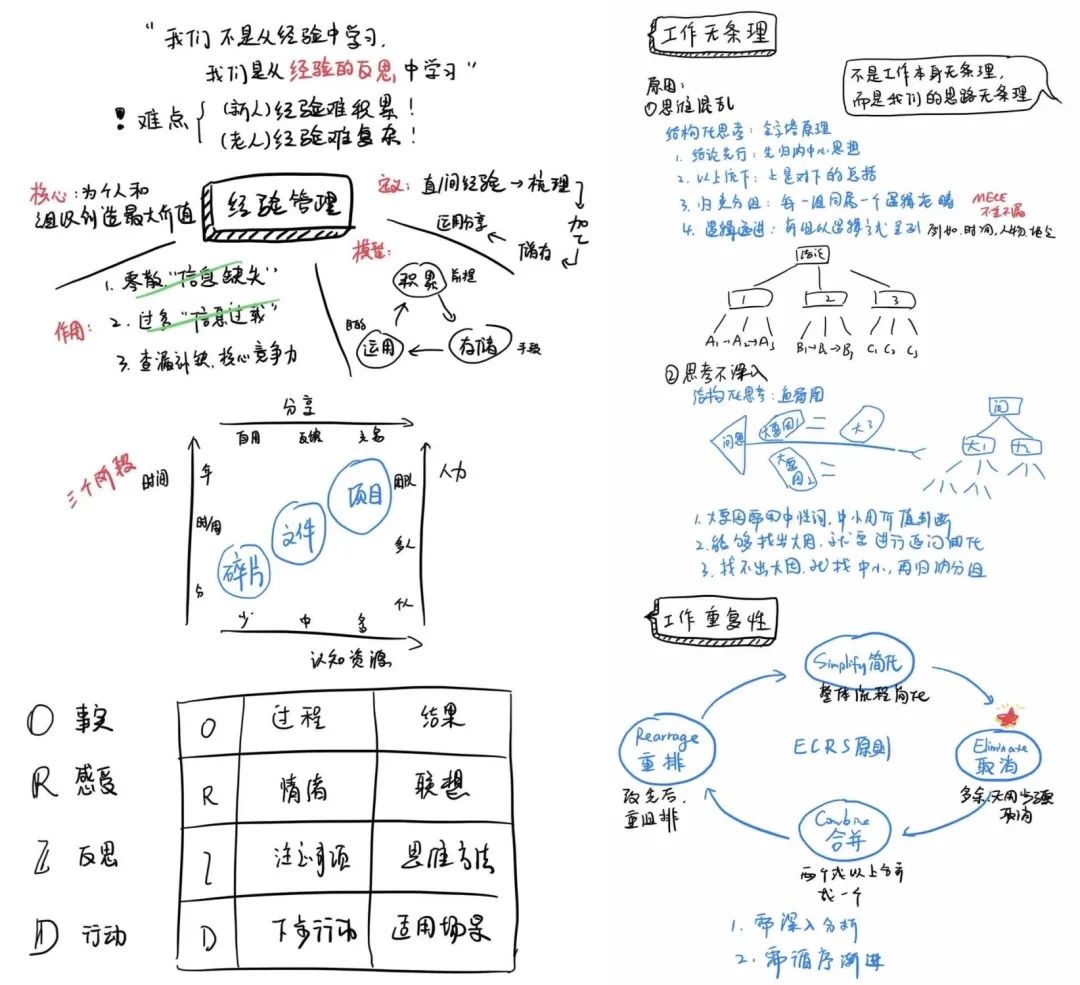 “我们不是从经验中学习,
我们是从经验的反思中学习”
! 难点
(新人)经验难积累!
(老人)经验难复杂!
核心:为个人和
组织创造最大价值
经验管理
定义: 直/间经验→梳理
加工
储存
运用分享
模型:
积累 前提
存储 手段
运用 目的
作用:
1. 零散“信息缺失”
2. 过多“信息过载”
3. 查漏补缺,核心竞争力
三个阶段
分享
自用
时间
年
时/周
分
碎片
文件
项目
人力
团队
多人
个人
少 中 多
认知资源
O 事实
R 感受
I 反思
D 行动
O 过程 结果
R 情绪 联想
I 注意事项 思维方法
D 下步行动 适用场景
工作无条理
不是工作本身无条理,
而是我们的思路无条理
原因:
①思维混乱
结构化思考: 金字塔原理
1. 结论先行: 先归纳中心思想
2. 以上统下: 上是对下的总括
3. 归类分组: 每一组同属一个逻辑范畴
MECE
不重不漏
4. 逻辑递进: 每组以逻辑方式呈列 例如.时间,人物
结论
1 2 3
A₁→A₂→A₃ B₁→B₂→B₃ C₁ C₂ C₃
②思考不深入
结构化思考: 鱼骨图
问题
大要因1
大3
大要因2
问
大1
大2
1. 大要因常用中性词,中小用价值判断
2. 能够找出大因,就要进行逐词细化
3. 找不出大因,就找中小,再归纳分组
工作重复性
Simplify 简化
整体流程简化
Rearrage
重排
改先后,
重组排
ECRS原则
Eliminate
取消
多余/无用步骤
取消
Combine
合并
两个或以上合并
成一个
1. 需深入分析
2. 需循序渐进